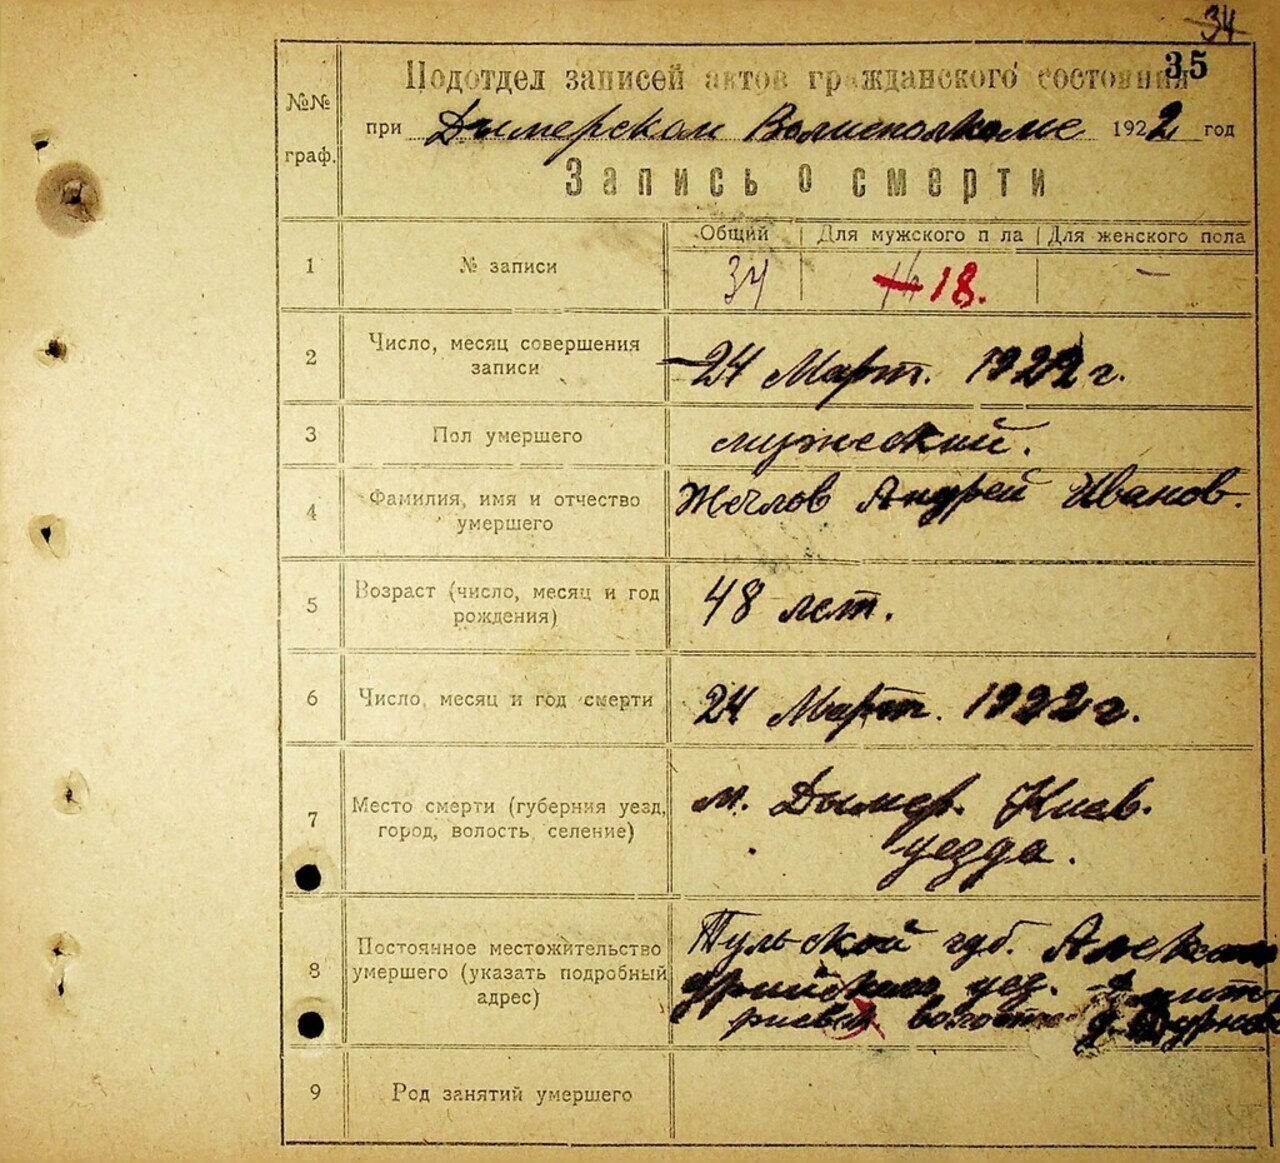 34
35
Подотдел записей актов гражданского состояния
№№ граф.
при Дымерском Волисполкоме 1922 год
Запись о смерти
Общий | Для мужского п ла | Для женского пола
1 № записи 34 18. —
2 Число, месяц совершения
записи
24 Март. 1922 г.
3 Пол умершего мужеский.
4 Фамилия, имя и отчество
умершего
Жеглов Андрей Иванов.
5 Возраст (число, месяц и год
рождения)
48 лет.
6 Число, месяц и год смерти 24 Март. 1922 г.
7 Место смерти (губерния уезд,
город, волость, селение)
м. Дымер. Киев.
уезда.
8 Постоянное местожительство
умершего (указать подробный
адрес)
Тульской губ.
уез. Дмит
риевск волости д.
9 Род занятий умершего